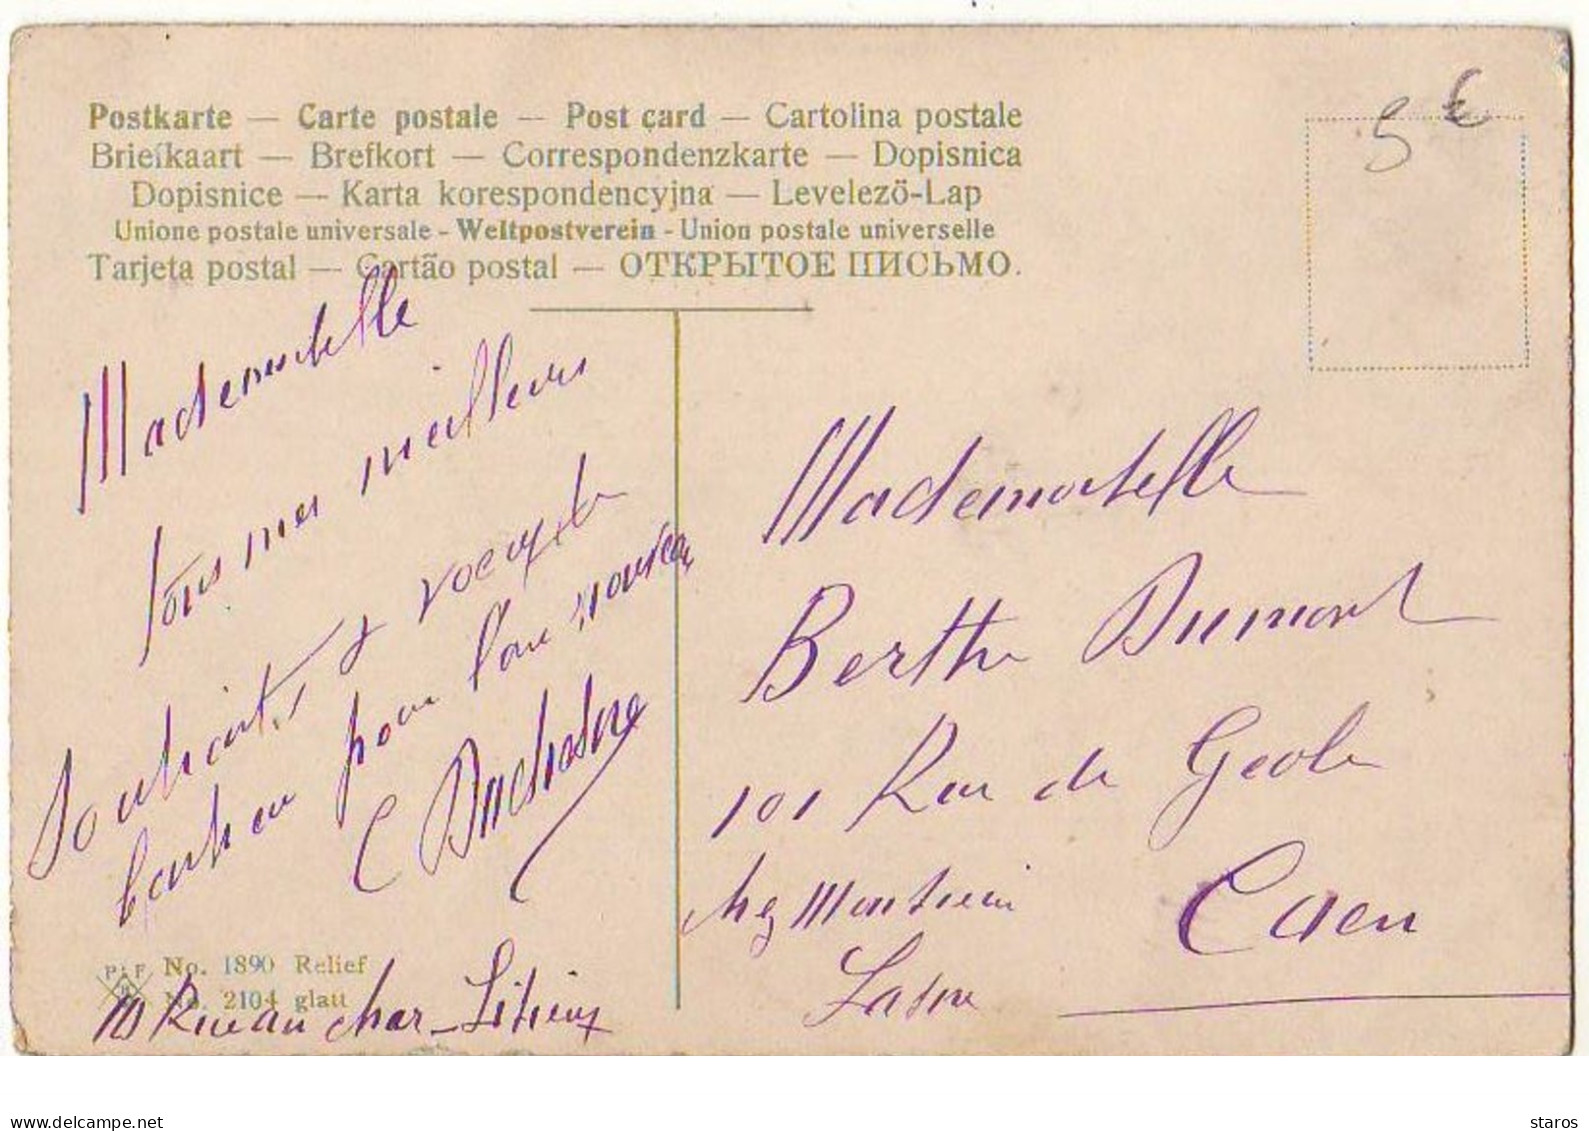 Postkarte — Carte postale — Post card — Cartolina postale
Briefkaart — Brefkort — Correspondenzkarte — Dopisnica
Dopisnice — Karta korespondencyjna — Levelező-Lap
Unione postale universale - Weltpostverein - Union postale universelle
Tarjeta postal — Cartão postal — ОТКРЫТОЕ ПИСЬМО.
5 €
Mademoiselle
Tous mes meilleurs
souhaits &
bonheur pour l'an nouveau
C Duchesne
P F No. 1890 Relief
No. 2104 glatt
10 Rue au char-Lisieux
Mademoiselle
Berthe Dumont
101 Rue de Geole
chez Monsieur Caen
Lasne
www.delcampe.net
staros